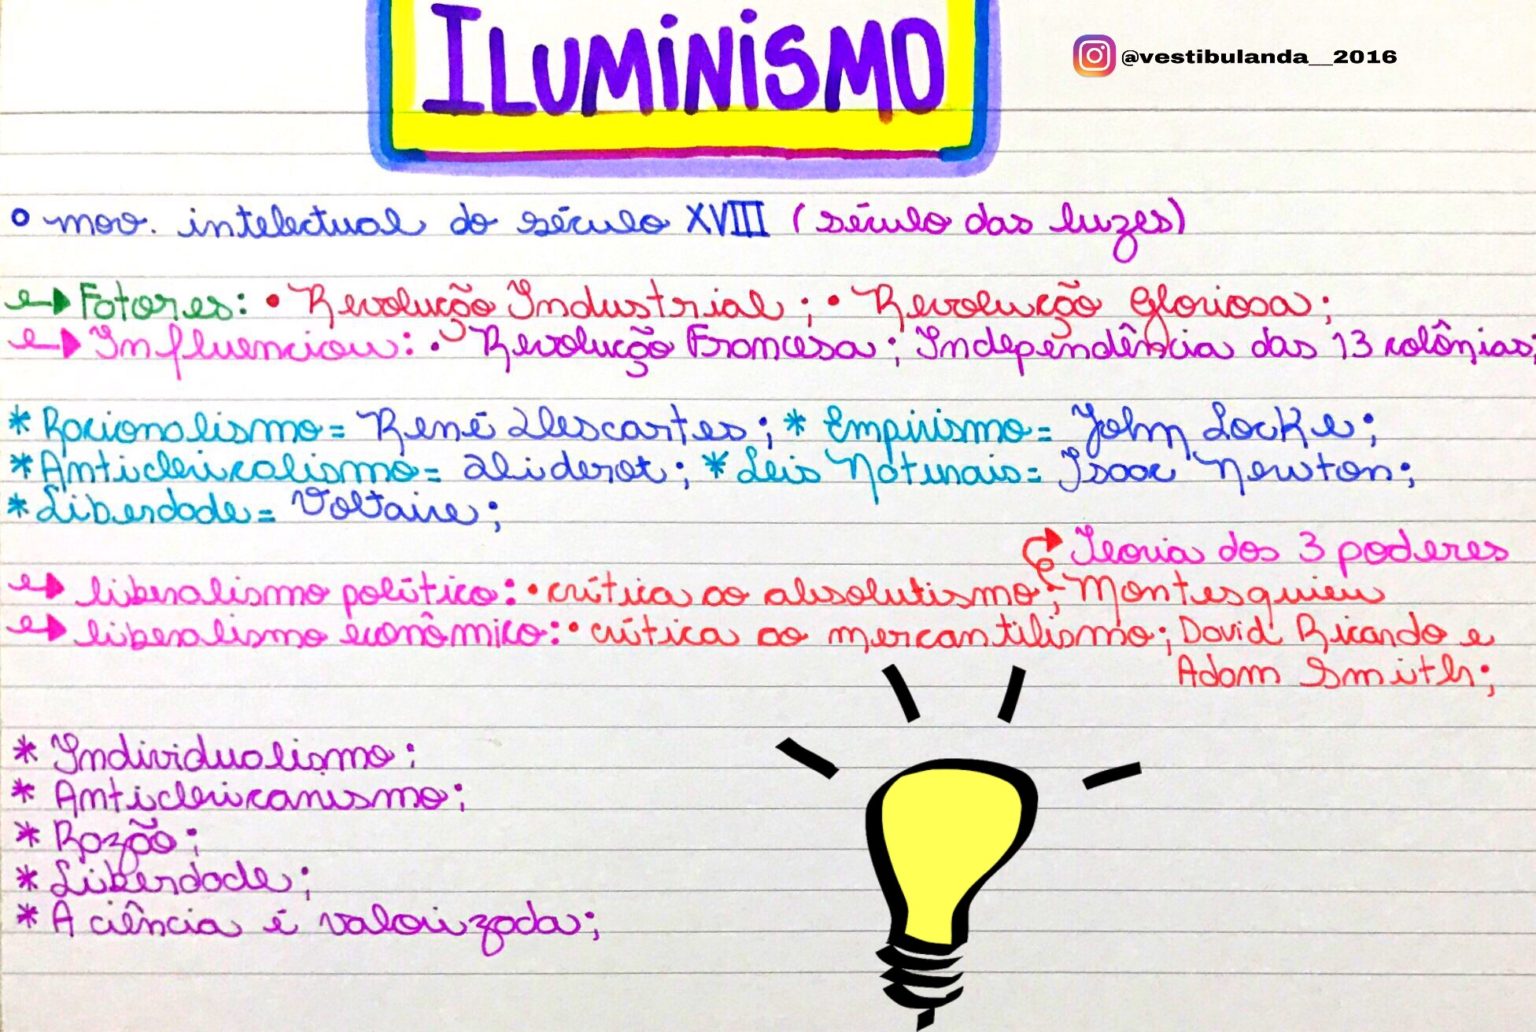 ILUMINISMO
@vestibulanda__2016
mov. intelectual do século XVIII (século das luzes)
Fatores: • Revolução Industrial; • Revolução Gloriosa;
Influenciou: • Revolução Francesa; Independência das 13 colônias;
* Racionalismo = René Descartes; * Empirismo = John Locke;
* Anticlericalismo = Diderot; * Leis Naturais = Isaac Newton;
* Liberdade = Voltaire;
Teoria dos 3 poderes
liberalismo político: • crítica ao absolutismo; Montesquieu
liberalismo econômico: • crítica ao mercantilismo; David Ricardo e
Adam Smith;
* Individualismo;
* Anticlericanismo;
* Razão;
* Liberdade;
* A ciência é valorizada;